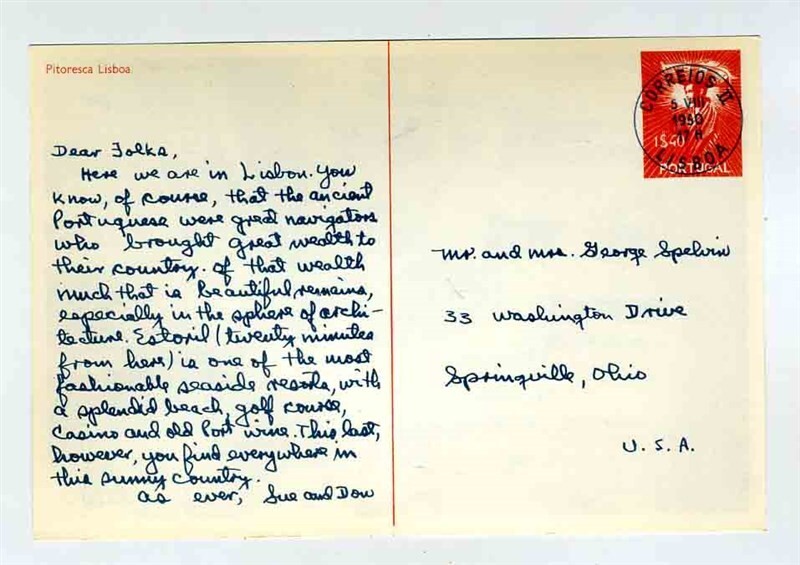 Pitoresca Lisboa
Dear Folks,
Here we are in Lisbon. You
know, of course, that the ancient
Portuguese were great navigators
who brought great wealth to
their country. Of that wealth
much that is beautiful remains,
especially in the sphere of archi-
tecture. Estoril (twenty minutes
from here) is one of the most
fashionable seaside resorts, with
a splendid beach, golf course,
casino and old Port wine. This last,
however, you find everywhere in
this sunny country.
As ever, Sue and Don
CORREIOS II
5 VIII
1950
LISBOA
1$40
PORTUGAL
Mr. and Mrs. George Spelvin
33 Washington Drive
Springville, Ohio
U. S. A.